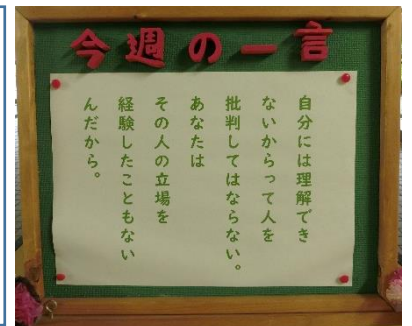 今週の一言
自分には理解でき
ないからって人を
批判してはならない。
あなたは
その人の立場を
経験したこともない
んだから。